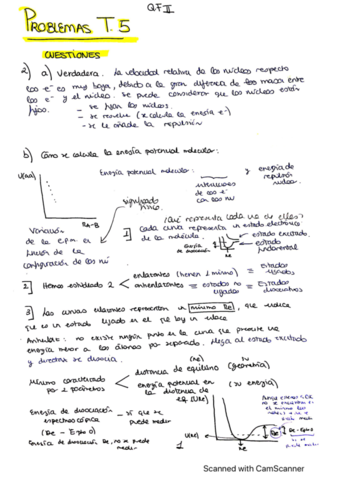 QF II
PROBLEMAS T.5
CUESTIONES
2) a) Verdadera. La velocidad relativa de los núcleos respecto
los e⁻ es muy baja, debido a la gran diferencia de masa entre
los e⁻ y el núcleo. Se puede considerar que los núcleos están
fijos.
- se fijan los núcleos.
- se resuelve (se calcula la energía e⁻)
- se le añade la repulsión
b) Cómo se calcula la energía potencial molecular:
U(RAB)
Energía potencial molecular:
y energía de
repulsión
nuclear.
interacciones
de los e⁻
con los nu
RA-B
significado
físico
Variación
de la e.p.m. en
función de la
configuración de los nu
¿Qué representa cada una de ellas?
1 cada curva representa un estado electrónico
de la molécula.
estado excitado
estado
fundamental
2 Hemos estudiado 2
enlazantes (tienen 1 mínimo) = estados
ligados
antienlazantes = estados no ligados = Estados
disociativos
3 Las curvas enlazantes representan un mínimo Re, que indica
que es un estado ligado en el que hay un enlace
Antienlazante: no existe ningún punto en la curva que presente una
energía menor a los átomos por separado. Llega al estado excitado
y directa se disocia.
Mínimo caracterizado
por 2 parámetros
distancia de equilibrio (Re) (geometría)
energía potencial en
la distancia de
eq. (U(Re))
(su energía)
Energía de disociación
espectroscópica
(De - Ezpo)
- sí que se
puede
medir
Energía de disociación De, no se puede
medir
U(Re)
Re
De
De - Ezpo
sí se
puede medir
1
Scanned with CamScanner